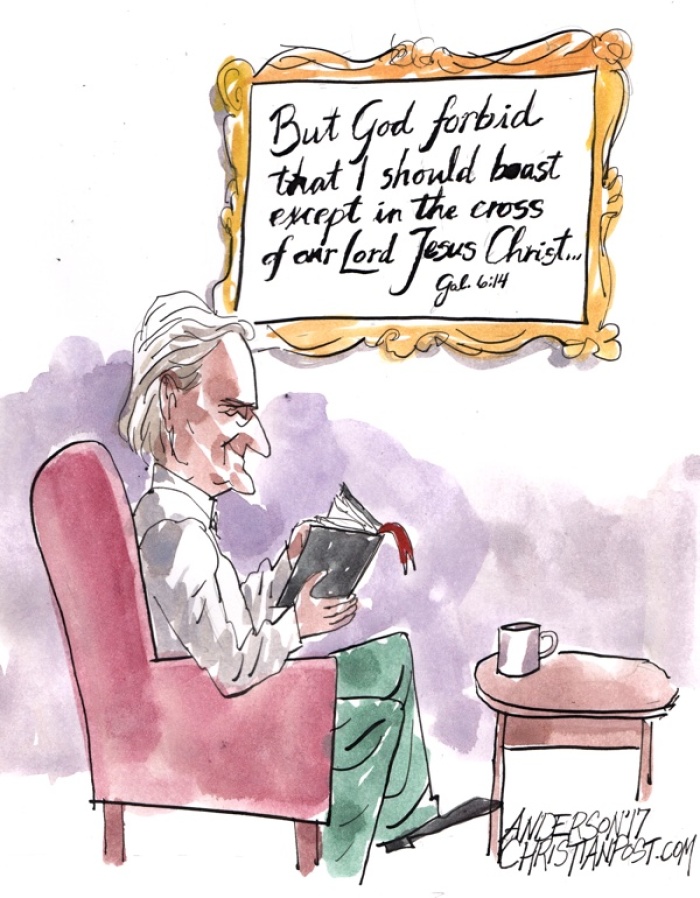 But God forbid
that I should boast
except in the cross
of our Lord Jesus Christ...
Gal. 6:14
ANDERSON'17
CHRISTIANPOST.COM